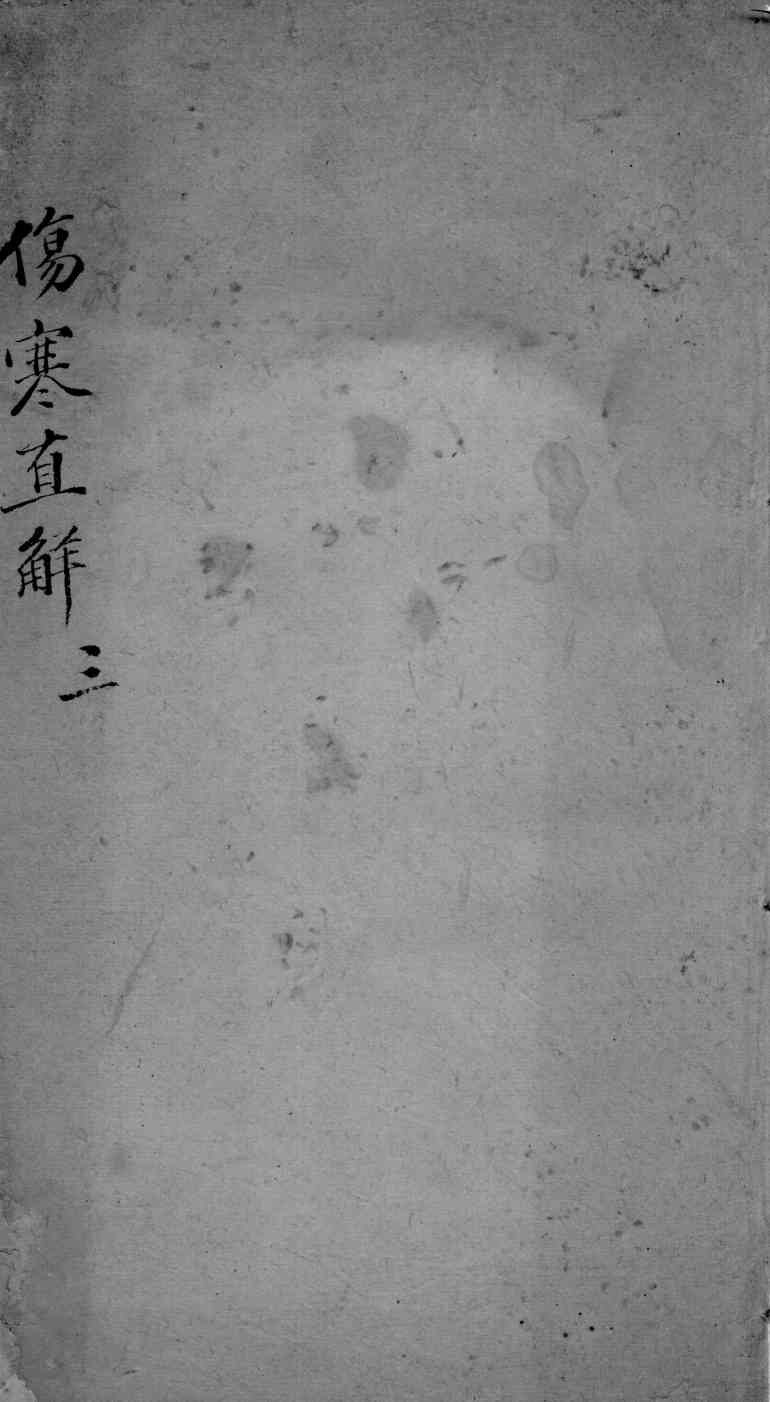 傷寒直解 三